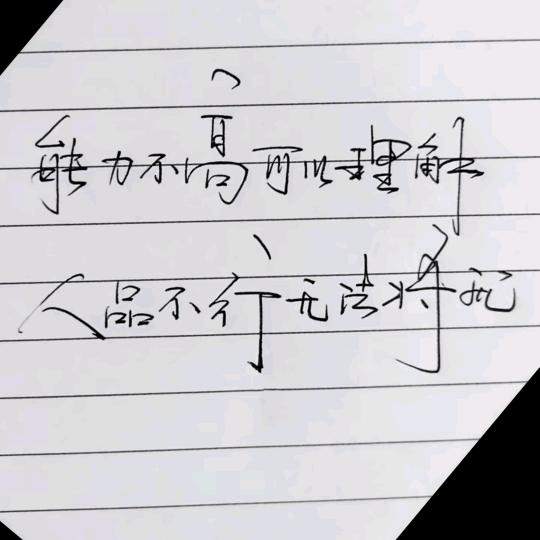 能力不高可以理解
人品不行无法将就